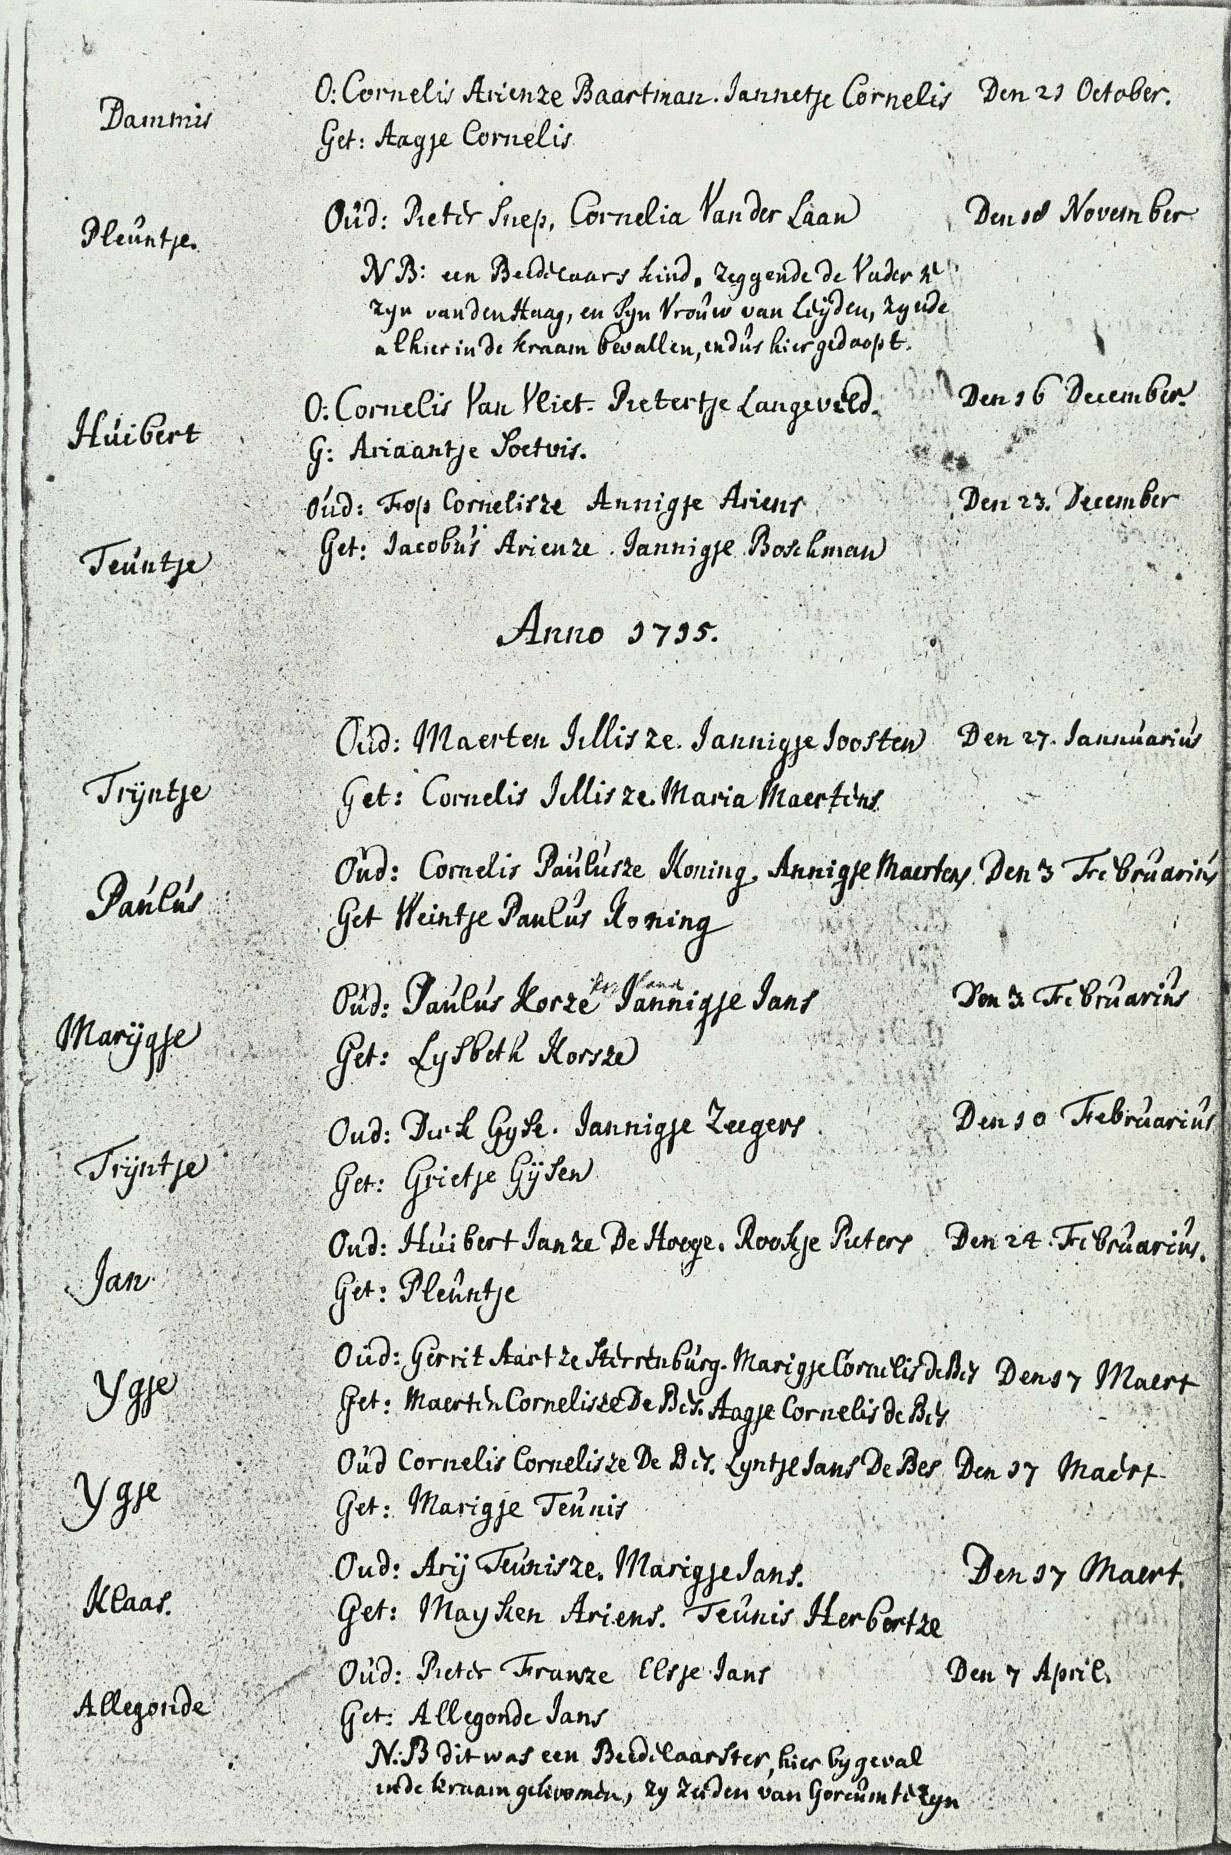 Dammis O: Cornelis Arienze Baartman. Iannetje Cornelis Den 21 October.
Get: Aagje Cornelis
Pleuntje. Oud: Pieter Snep, Cornelia Van der Laan Den 18 November
NB: een Bedelaars kind, zeggende de Vader te
zyn van den Haag, en syn Vrouw van Leyden, zynde
alhier in de kraam bevallen, en dus hier gedoopt.
Huibert O: Cornelis Van Vliet. Pietertje Langeveld. Den 16 December.
G: Ariaantje Soetvis.
Teuntje Oud: Fop Cornelisze Annigje Ariens Den 23. December
Get: Iacobus Arienze. Iannigje Boschman
Anno 1715.
Trijntje Oud: Maerten Jillisze. Iannigje Joosten Den 27. Iannuarius
Get: Cornelis Jillisze. Maria Maertens
Paulus Oud: Cornelis Paulusze Koning. Annigje Maertens Den 3 Februarius
Get Weintje Paulus Koning
Marijgje Oud: Paulus Korze Iannigje Ians Den 3 Februarius
Get: Lysbeth Korsze
Trijntje Oud: Dirk Gyse. Iannigje Zeegers Den 10 Februarius
Get: Grietje Gijsen
Jan Oud: Huibert Ianze De Hooge. Rookje Pieters Den 24. Februarius.
Get: Pleuntje
Ygje Oud: Gerrit Aartze Sterrenburg. Marigje Cornelis de Bes Den 17 Maert
Get: Maerten Cornelisze De Bes. Aagje Cornelis de Bes
Ygje Oud Cornelis Cornelisze De Bes. Lyntje Ians De Bes Den 17 Maert
Get: Marigje Teunis
Klaas. Oud: Arij Teunisze. Marigje Ians. Den 17 Maert.
Get: Mayken Ariens. Teunis Herbertze
Allegonde Oud: Pieter Franze Elsje Ians Den 7 April.
Get: Allegonde Ians
N:B dit was een Bedelaarster, hier by geval
in de kraam gekoomen, zy zeiden van Gorcum te zyn